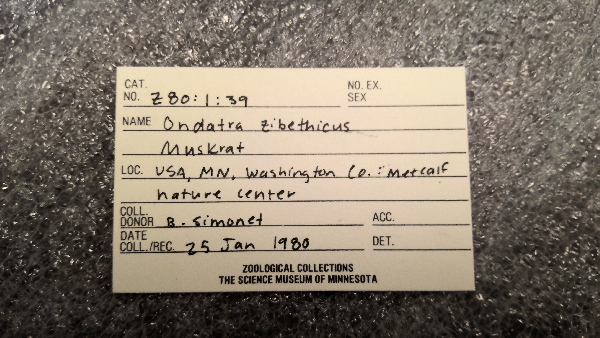 CAT. NO. Z80:1:39 NO. EX. SEX
NAME Ondatra zibethicus
Muskrat
LOC. USA, MN, Washington Co.: Metcalf
nature center
COLL. DONOR B. Simonet ACC.
DATE COLL./REC. 25 Jan 1980 DET.
ZOOLOGICAL COLLECTIONS
THE SCIENCE MUSEUM OF MINNESOTA